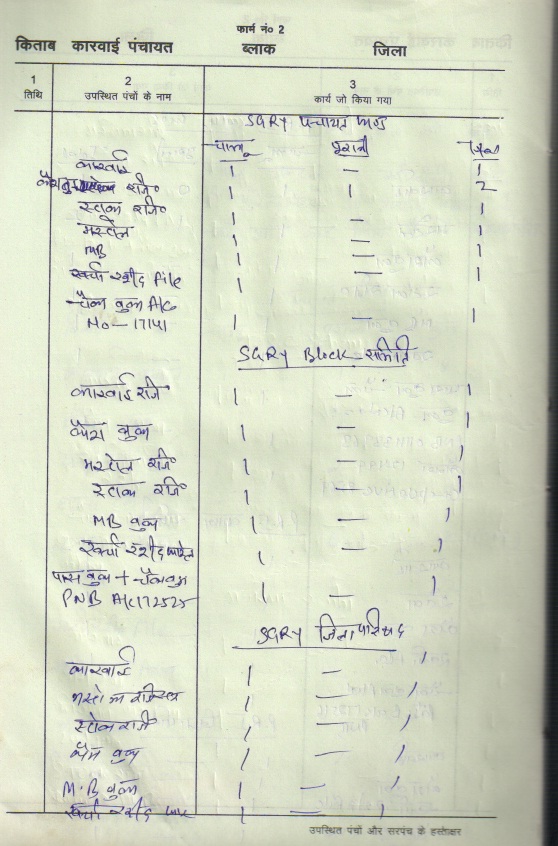 फार्म नं० 2
किताब कारवाई पंचायत ब्लाक जिला
1 2 3
तिथि उपस्थित पंचों के नाम कार्य जो किया गया
SGRY पंचायत
चालू पुरानी
कारवाई 1 — 1
रजि० 1 1 2
स्टाक रजि० 1 1
मस्टोल 1 — 1
MB 1 — 1
खर्चा रशीद File 1 — 1
चैक बुक A/C
No — 17141 1 — 1
SGRY Block समिति
कारवाई रजि० 1 — 1
कैश बुक 1 — 1
मस्टोल रजि० 1 — 1
स्टाक रजि० 1 1
MB बुक 1 — 1
खर्चा रशीद फाईल 1 — 1
पास बुक + चैकबुक
PNB A/C 172525 1 — 1
SGRY जिला परिषद
कारवाई 1 — 1
मस्टोल रजिस्टर 1 — 1
स्टोक रजि० 1 — 1
कैश बुक 1 — 1
M.B बुक 1 — 1
खर्चा रशीद 1 — 1
उपस्थित पंचों और सरपंच के हस्ताक्षर